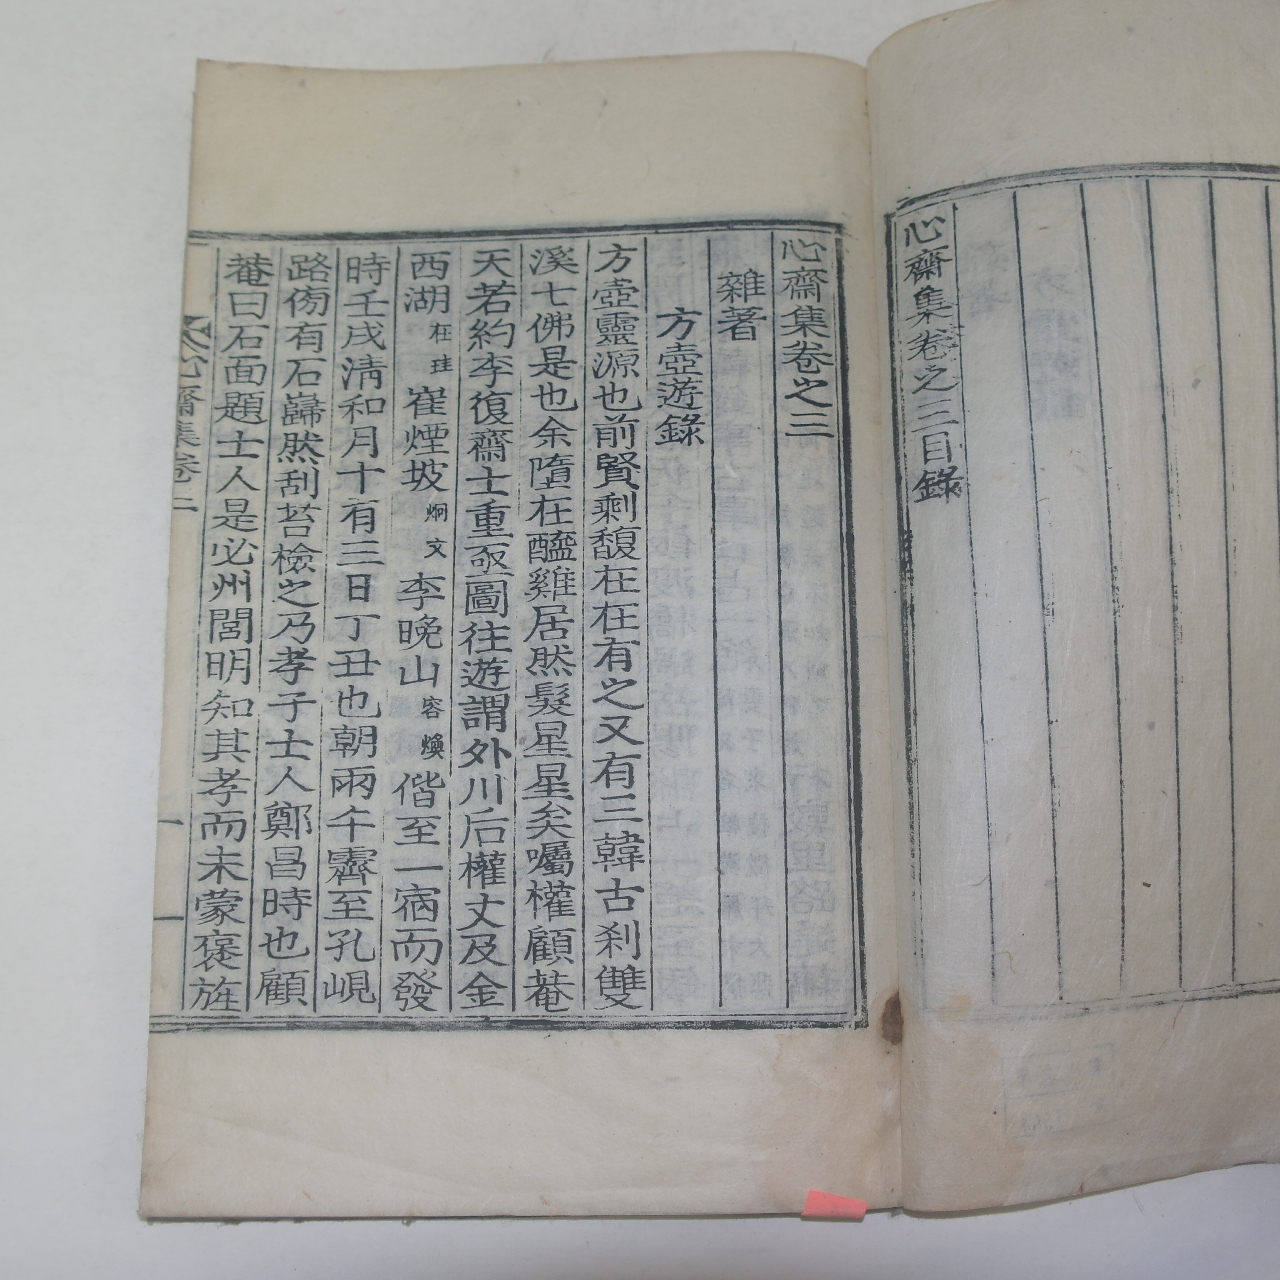 心齋集卷之三目錄
心齋集卷之三
雜著
方壺遊錄
方壺靈源也前賢剩馥在在有之又有三韓古刹雙
溪七佛是也余墮在醯雞居然髮星星矣囑權顧菴
天若約李復齋士重亟圖往遊謂外川后權丈及金
西湖在珪崔煙坡炯文李晚山容煥偕至一宿而發
時壬戌淸和月十有三日丁丑也朝雨乍霽至孔峴
路傍有石巋然刮苔檢之乃孝子士人鄭昌時也顧
菴曰石面題士人是必州閭明知其孝而未蒙褒旌
心齋集卷三 一